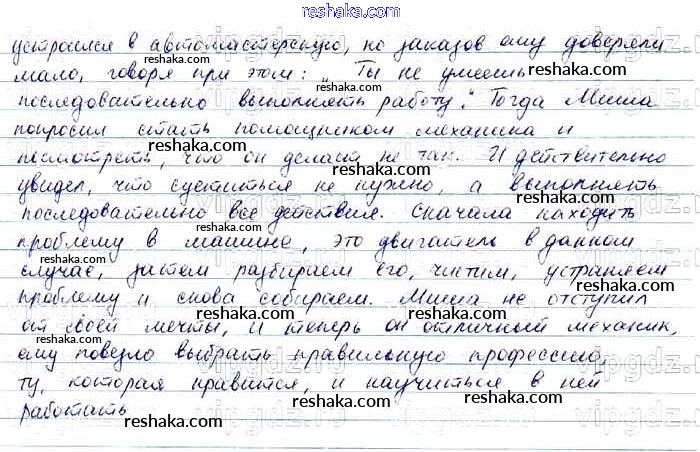 reshaka.com
устроился в автомастерскую, но заказов ему доверяли
мало, говоря при этом: „Ты не умеешь
последовательно выполнять работу." Тогда Миша
попросил стать помощником механика и
посмотреть, что он делает не так. И действительно
увидел, что суетиться не нужно, а выполнять
последовательно все действия. Сначала находить
проблему в машине, это двигатель в данном
случае, затем разбираем его, чистим, устраняем
проблему и снова собираем. Миша не отступил
от своей мечты, и теперь он отличный механик,
ему повезло выбрать правильную профессию,
ту, которая нравится, и научиться в ней
работать